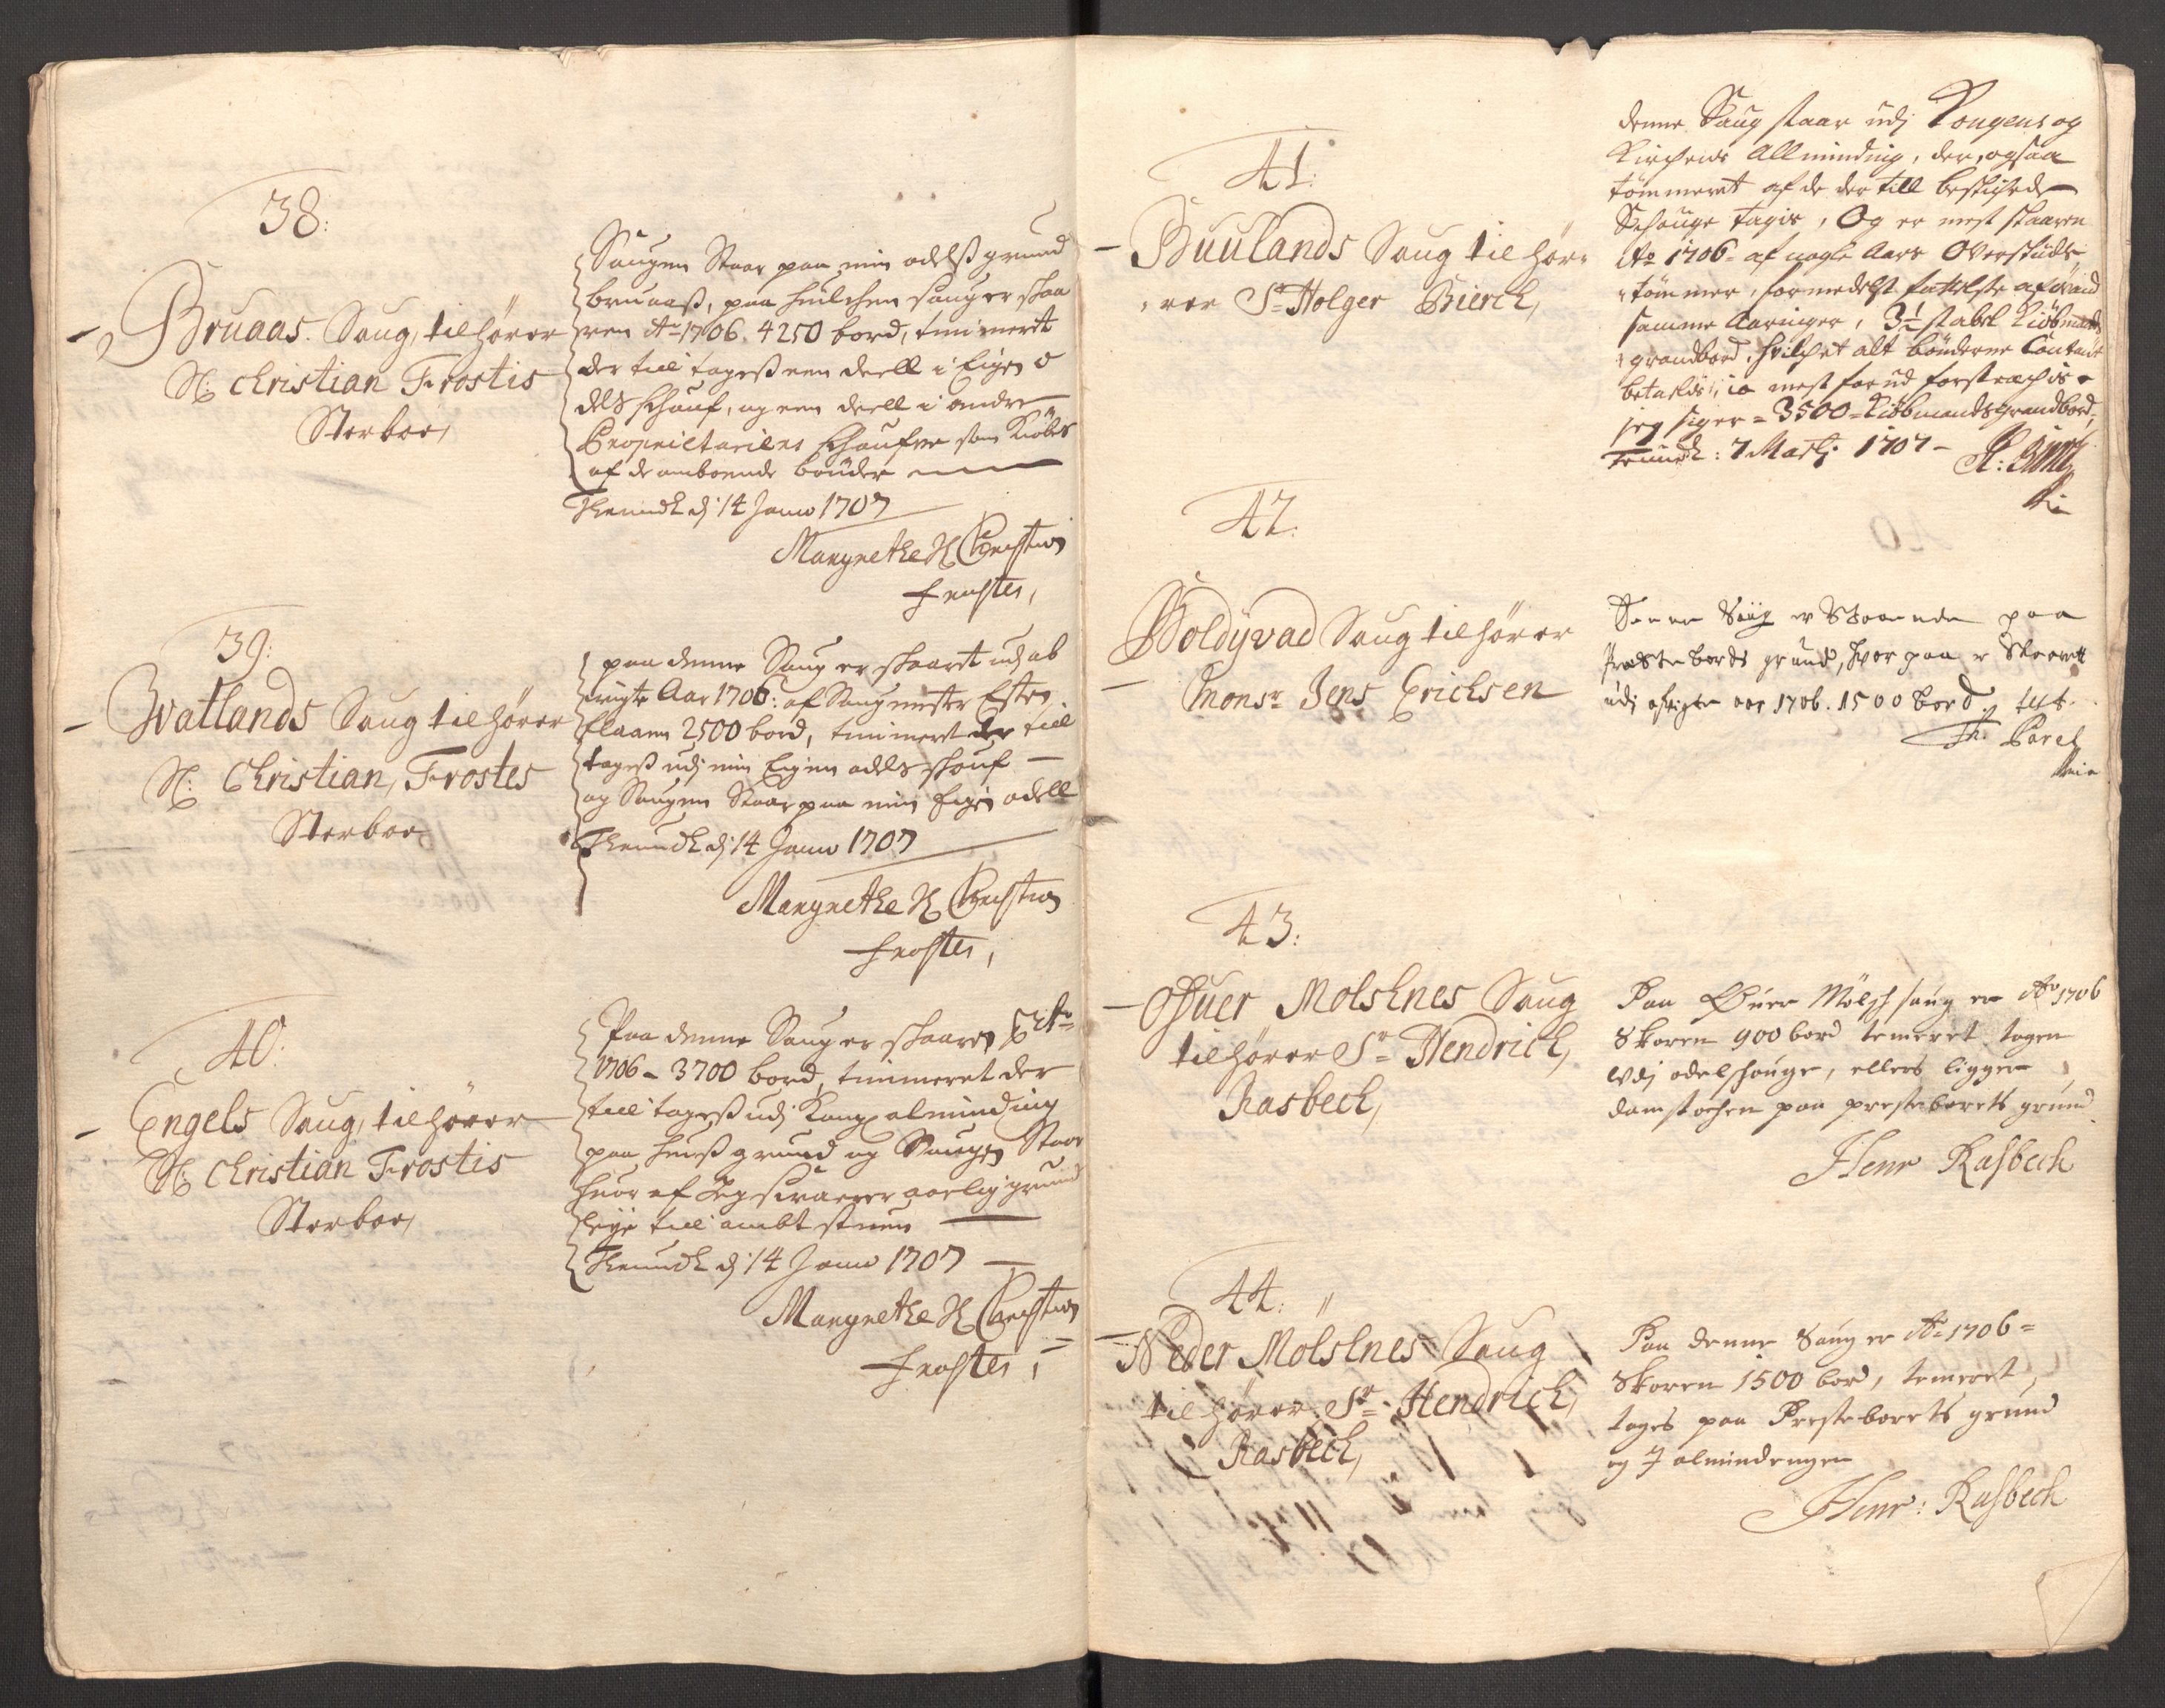 38:
Bruaas. Saug, tilhörer
S: Christian Frostis
Sterboe,
Saugen Staar paa min odelss grund
bruaass, paa huilchen saug er skaa
ren Ao 1706. 4250 bord, timmeret
der till tagess een deell i Eigen o
dels schouf, og een deell i andre
Proprietariens schoufve som kiöbes
af de omboende bönder
Thrundh d: 14 Janu 1707
Margrethe S Christian
Frostes,
39:
Watlands Saug tilhörer
S: Christian, Frostes
Sterboe
paa denne Saug er skaaret udj ab
vigte Aar 1706: af Saugmester Esten
2500 bord, timmeret der till
tagess udj min Eigen odels skouf
og Saugen Staar paa min Eigen odell
Thrundh d: 14 Janu 1707
Margrethe S Christian
Frostes,
40:
Engels Saug, tilhörer
S: Christian Frostis
Sterboe,
Paa denne Saug er skaaren Ao
1706 - 3700 bord, timmeret der
till tagess udj Kong alminding
paa huess grund og Saugen Staar
huor af Jeg suarer aarlig grund
leye till ambt stuen
Thrundh d: 14 Janu 1707
Margrethe S Christian
Frostes,
41:
Buulands Saug til hör-
rer Sr Holger Bierck,
denne Saug staar udj Kongens og
Kirchens Allminding, der, ogsaa
tömmeret af de der till
Schouge tagis, Og er mest skaaren
Ao 1706 = af nogle Aars Overskuds
tömmer, formedelst af vand
samme Aaringer, 3½ stabel Kiöbmands
grandbord, huilchet alt bönderne Contant
betalis, ia mest forud forstrechis
jeg siger = 3500 = Kiöbmandsgrandbord,
Trundh: 7 Martj 1707 -
42:
Boldyvad Saug tilhörer
Monsr Jens Erichsen
Denne Saug er Staaende paa
Præste bords grund, hvor paa er Skaaret
udj afvigte aar 1706. 1500 bord,
43:
Ofuer Molsknes Saug
tilhörer Sr Hendrick,
Rasbech,
Paa Öuer Mölsh saug er Ao 1706
Skoren 900 bord temeret tagen
Udj odelschouge, ellers ligger
damstochen paa presteborets grund
Henr Rasbech
44:
Neder Mölslnes Saug
tilhörer Sr Hendrick,
Rasbech,
Paa denne Saug er Ao 1706 =
Skoren 1500 bord, temeret,
tages paa Presteborets grund
og J almindengen
Henr: Rasbech